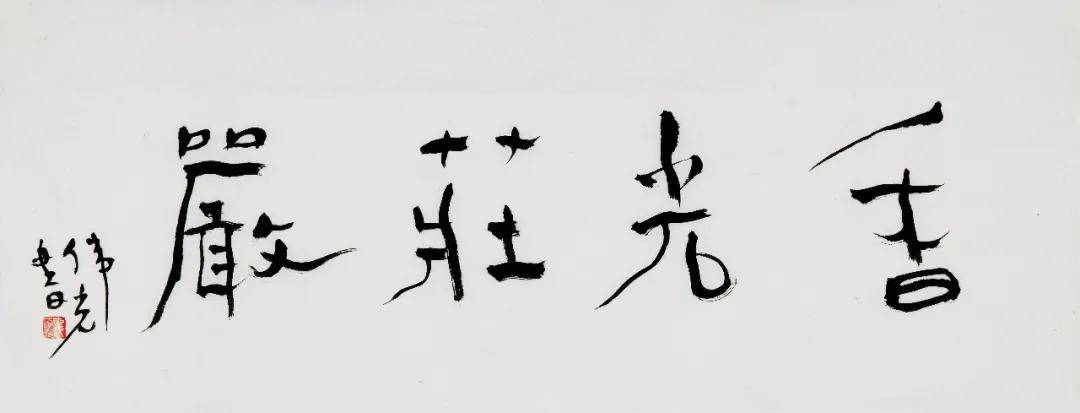 香光莊嚴
偉光
書